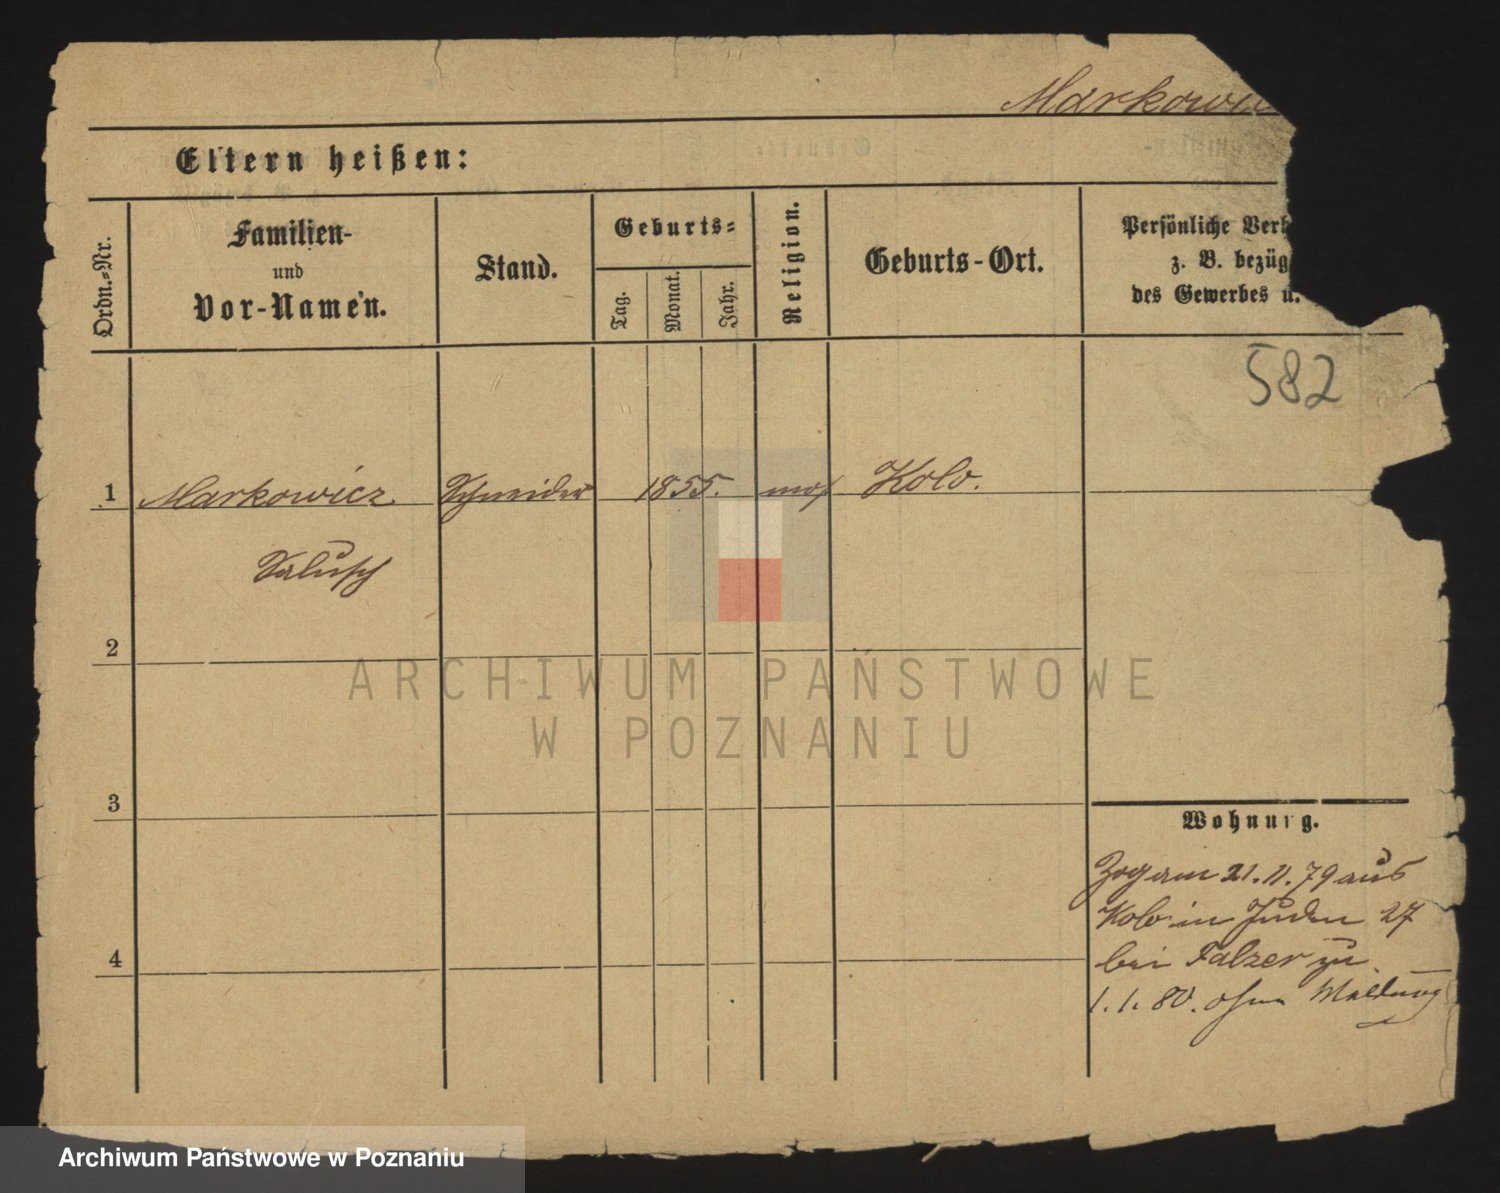 Markowic
Eltern heißen:
Ordn.-Nr.
Familien-
und
Vor-Namen.
Stand.
Geburts-
Tag.
Monat.
Jahr.
Religion.
Geburts-Ort.
Persönliche Verh
z. B. bezüg
des Gewerbes u.
582
1 Markowicz Schneider 1855. mos Kolo.
Salusch
2
3
4
Wohnung.
Zog am 21.11.79 aus
Kolo in Juden 27
bei Falzer zu
1.1.80. ohne Meldung
ARCHIWUM PAŃSTWOWE
W POZNANIU
Archiwum Państwowe w Poznaniu